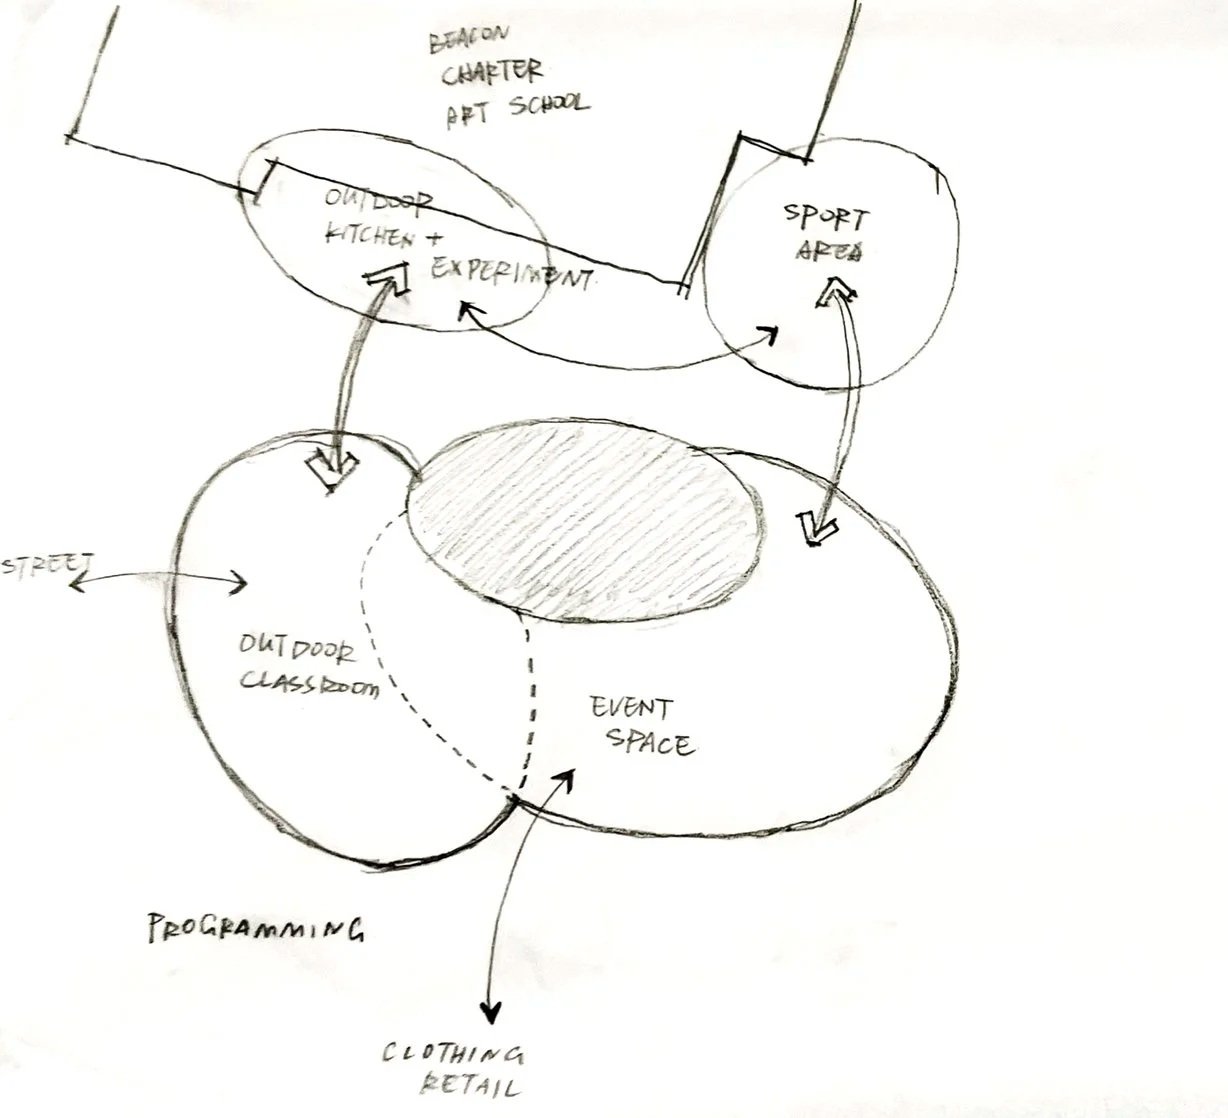 BEACON
CHARTER
ART SCHOOL
OUTDOOR
KITCHEN +
EXPERIMENT
SPORT
AREA
STREET
OUTDOOR
CLASSROOM
EVENT
SPACE
PROGRAMMING
CLOTHING
RETAIL